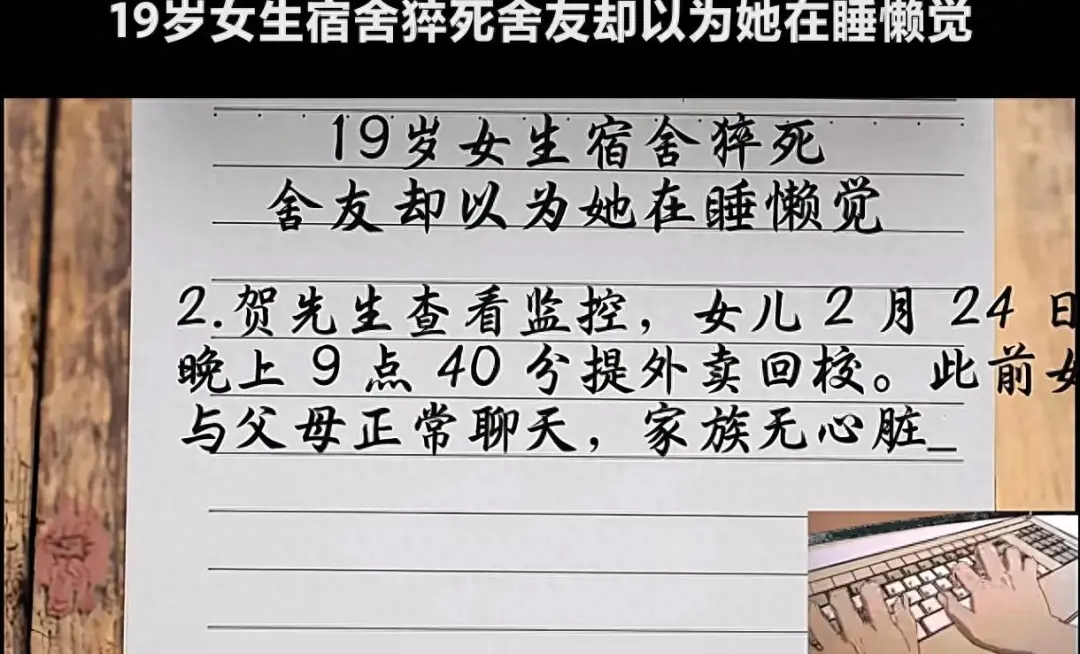 19岁女生宿舍猝死舍友却以为她在睡懒觉
19岁女生宿舍猝死
舍友却以为她在睡懒觉
2.贺先生查看监控，女儿2月24日
晚上9点40分提外卖回校。此前女
与父母正常聊天，家族无心脏_